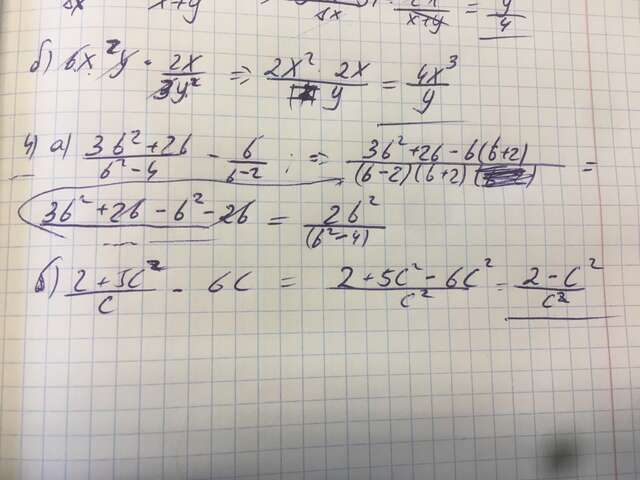 4x x+y 4x x+y = y/4
б) 6x²y · 2x/3y² => 2x² · 2x/y = 4x³/y
4) а) 3b²+2b/b²-4 - b/b-2 : => 3b²+2b-b(b+2)/(b-2)(b+2) =
3b²+2b-b²-2b = 2b²/(b²-4)
б) 2+5c²/c - 6c = 2+5c²-6c²/c² = 2-c²/c²